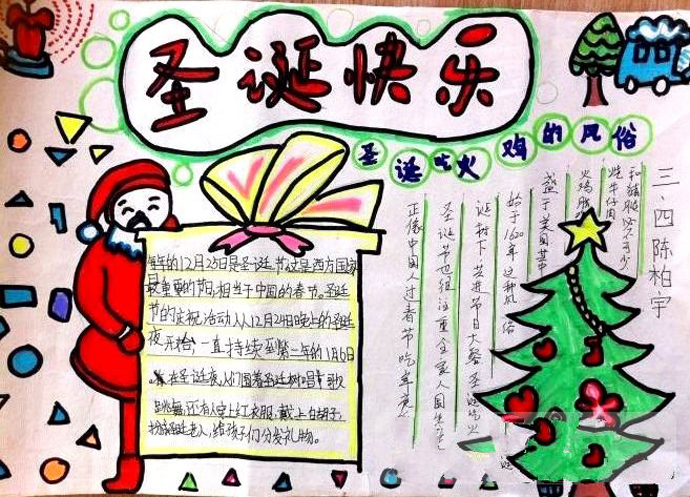 圣诞快乐
圣诞吃火鸡的风俗
三.四陈柏宇
每年的12月25日是圣诞节,这是西方国家
最重要的节日,相当于中国的春节。圣诞
节的庆祝活动从12月24日晚上的圣诞
夜开始,一直持续至第二年的1月6日
在圣诞夜,人们围着圣诞树唱歌
跳舞,还有人穿上红衣服,戴上白胡子,
扮演圣诞老人,给孩子们分发礼物。
正像中国人过春节吃年
圣诞节也很注重全家人围
诞树下,共进节日大餐圣诞吃火
始于1620年这种风俗
盛于美国其中
火鸡
烧牛仔肉
和猪腿必不可少